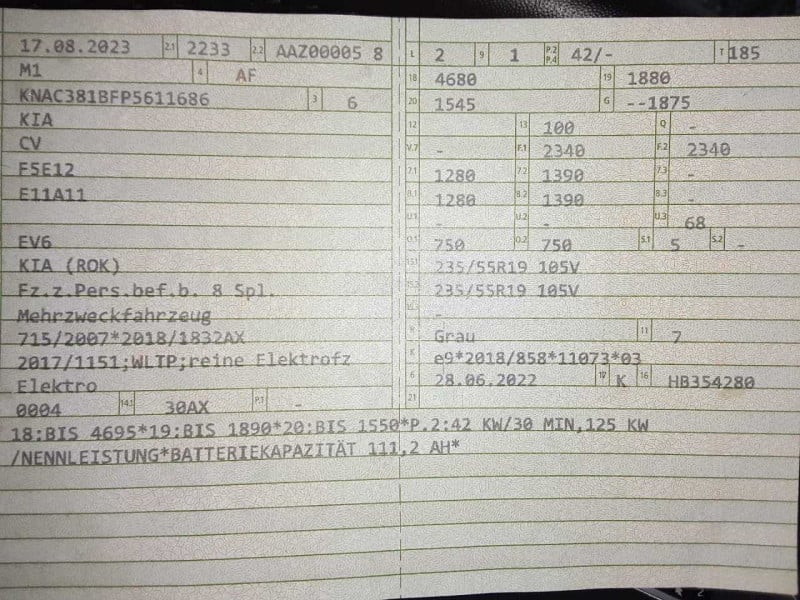 17.08.2023 2.1 2233 2.2 AAZ00005 8
M1 4 AF
KNAC381BFP5611686 3 6
KIA
CV
F5E12
E11A11
EV6
KIA (ROK)
Fz.z.Pers.bef.b. 8 Spl.
Mehrzweckfahrzeug
715/2007*2018/1832AX
2017/1151;WLTP;reine Elektrofz
Elektro
0004 14.1 30AX P.1 -
L 2 9 1 P.2 P.4 42/- T 185
18 4680 19 1880
20 1545 G --1875
12 13 100 Q -
V.7 - F.1 2340 F.2 2340
7.1 1280 7.2 1390 7.3 -
8.1 1280 8.2 1390 8.3 -
U.1 - U.2 - U.3 68
O.1 750 O.2 750 S.1 5 S.2 -
15.1 235/55R19 105V
15.2 235/55R19 105V
-
R Grau 11 7
K e9*2018/858*11073*03
6 28.06.2022 17 K 16 HB354280
21
18:BIS 4695*19:BIS 1890*20:BIS 1550*P.2:42 KW/30 MIN,125 KW
/NENNLEISTUNG*BATTERIEKAPAZITÄT 111,2 AH*